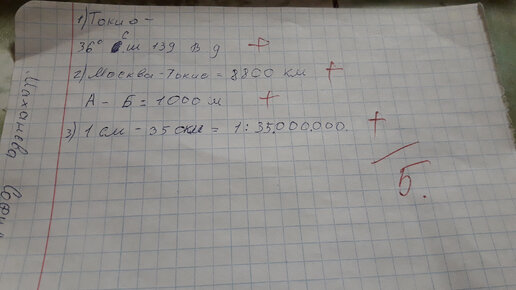 1) Токио -
36° с ш 139 в д +
2) Москва - Токио = 8800 км +
А - Б = 1000 м +
3) 1 см - 350км = 1 : 35,000,000. +
5.